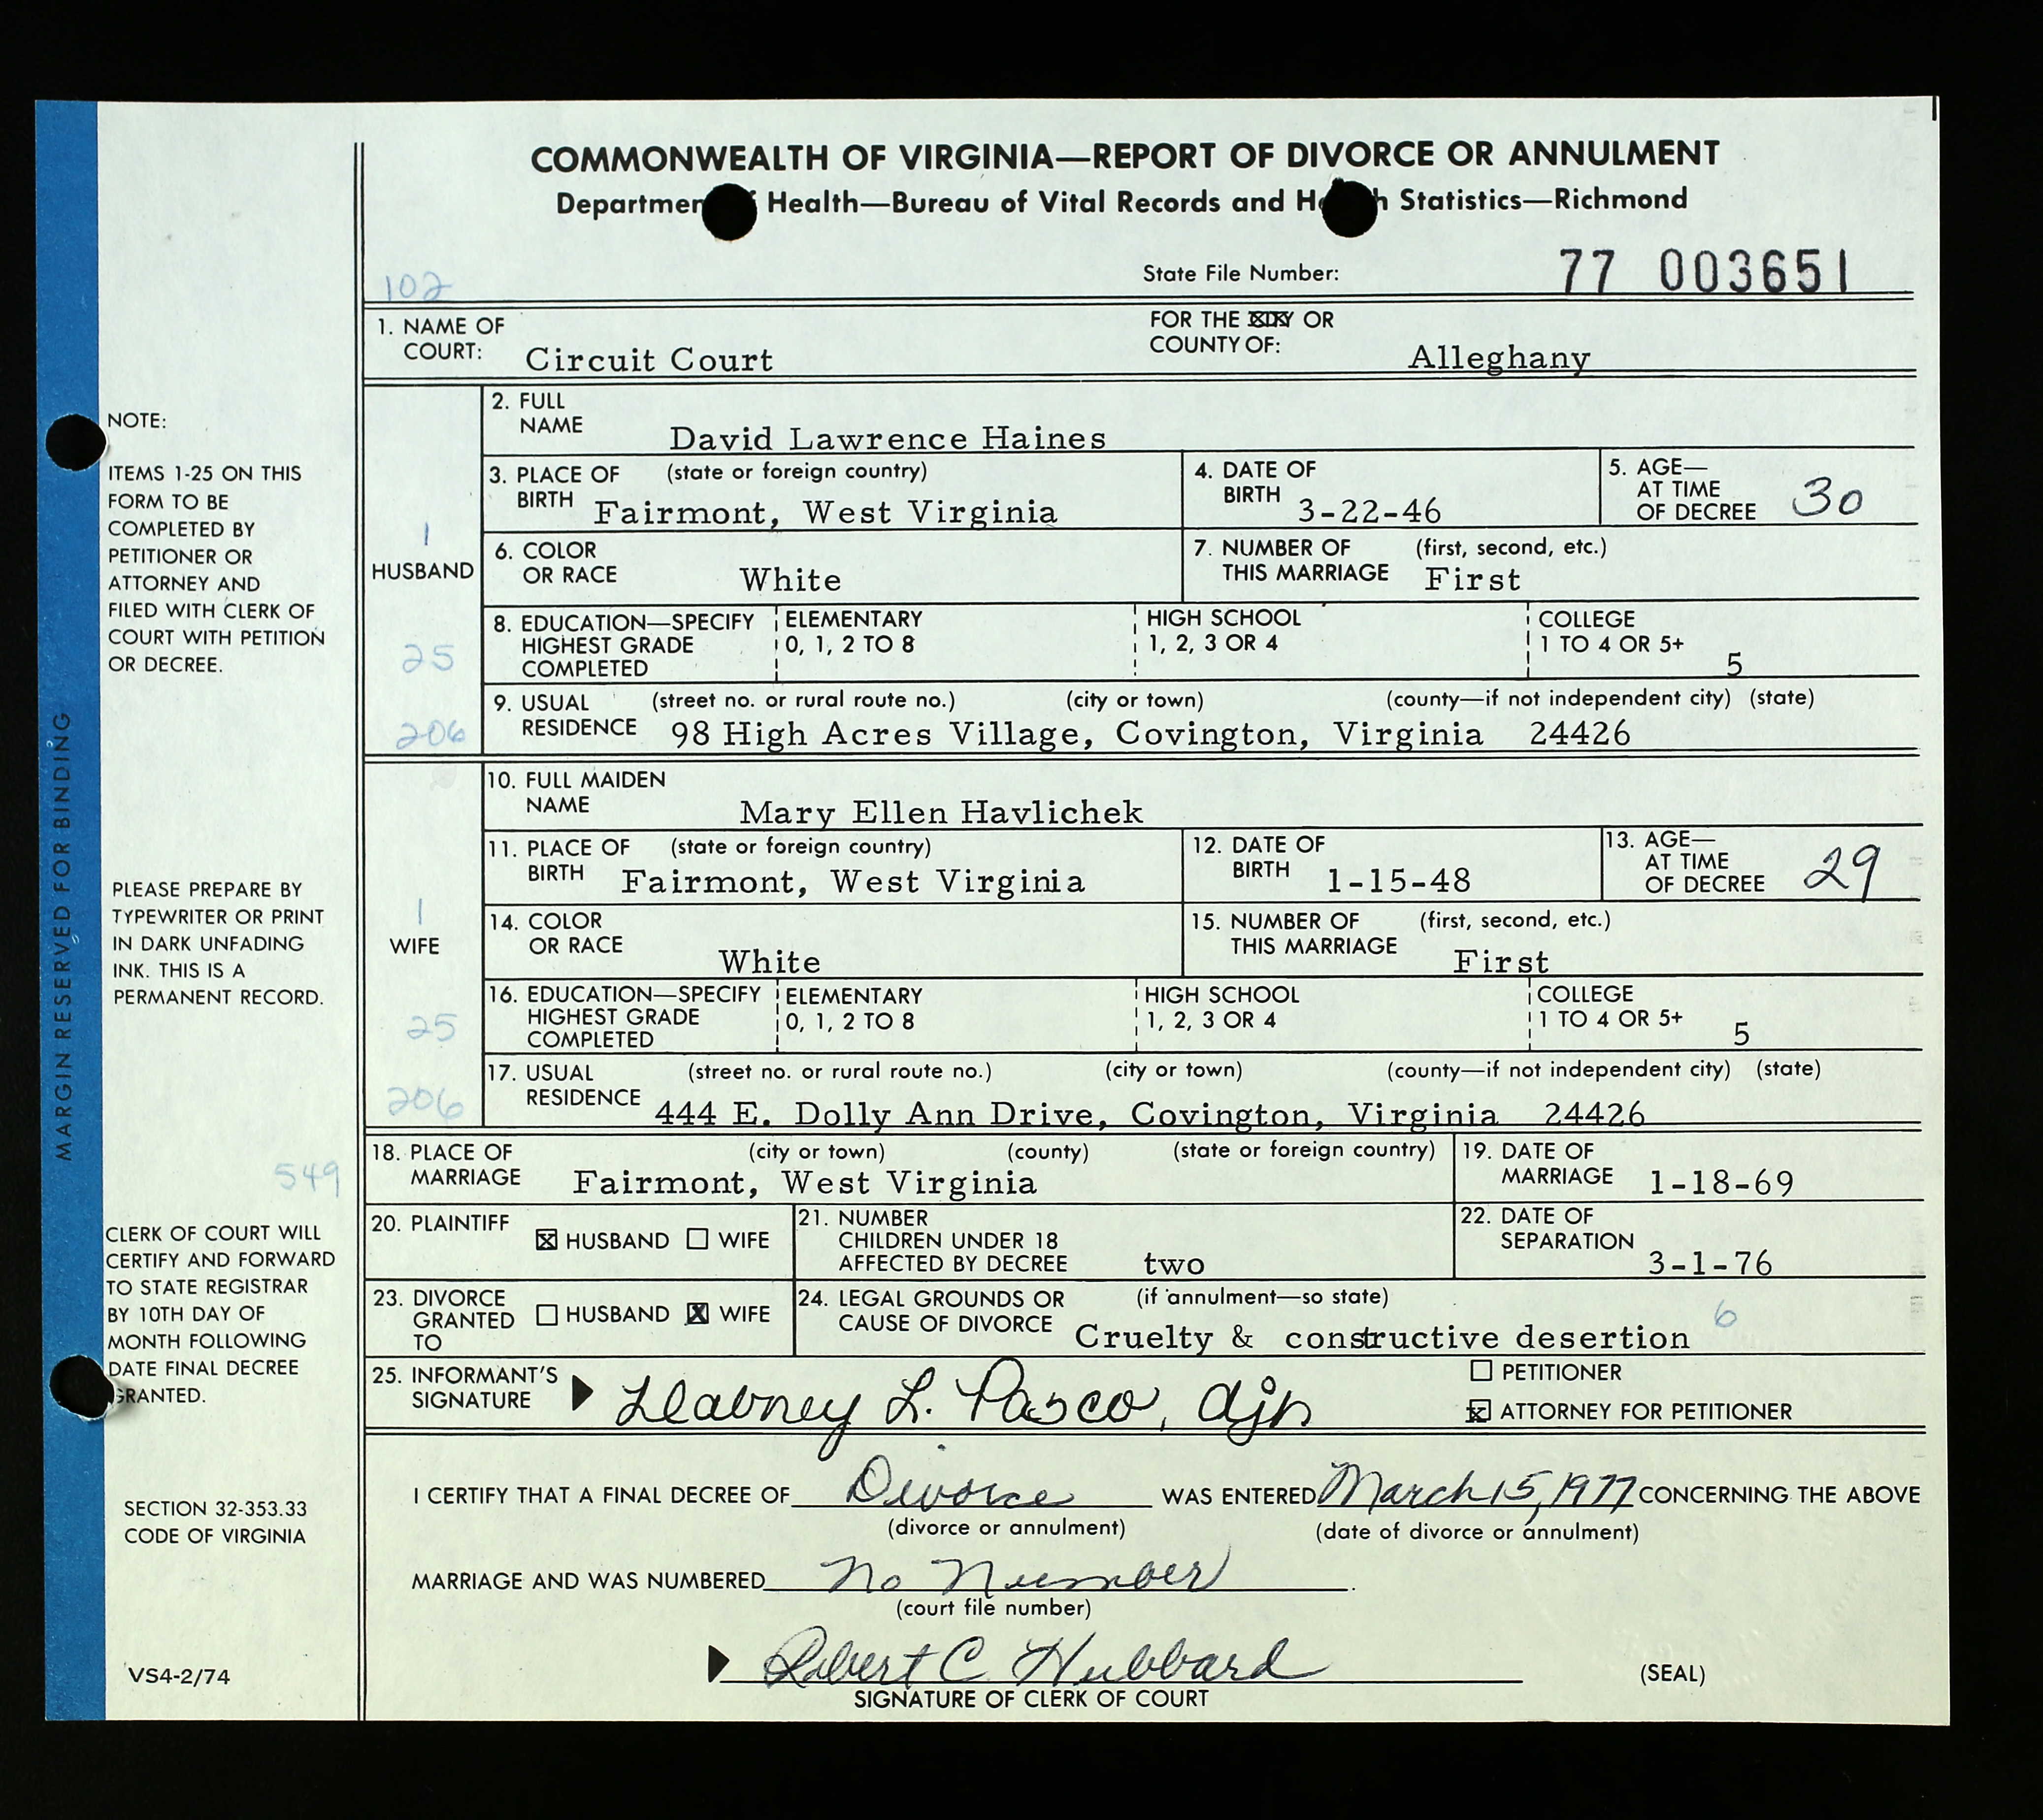 COMMONWEALTH OF VIRGINIA—REPORT OF DIVORCE OR ANNULMENT
Departmen f Health—Bureau of Vital Records and He h Statistics—Richmond
102
State File Number: 77 003651
1. NAME OF COURT: Circuit Court FOR THE CITY OR COUNTY OF: Alleghany
2. FULL NAME David Lawrence Haines
3. PLACE OF BIRTH (state or foreign country) Fairmont, West Virginia
4. DATE OF BIRTH 3-22-46
5. AGE—AT TIME OF DECREE 30
1
HUSBAND
6. COLOR OR RACE White
7. NUMBER OF THIS MARRIAGE (first, second, etc.) First
25
8. EDUCATION—SPECIFY HIGHEST GRADE COMPLETED
ELEMENTARY 0, 1, 2 TO 8
HIGH SCHOOL 1, 2, 3 OR 4
COLLEGE 1 TO 4 OR 5+ 5
206
9. USUAL RESIDENCE (street no. or rural route no.) (city or town) (county—if not independent city) (state)
98 High Acres Village, Covington, Virginia 24426
10. FULL MAIDEN NAME Mary Ellen Havlichek
11. PLACE OF BIRTH (state or foreign country) Fairmont, West Virginia
12. DATE OF BIRTH 1-15-48
13. AGE—AT TIME OF DECREE 29
1
WIFE
14. COLOR OR RACE White
15. NUMBER OF THIS MARRIAGE (first, second, etc.) First
25
16. EDUCATION—SPECIFY HIGHEST GRADE COMPLETED
ELEMENTARY 0, 1, 2 TO 8
HIGH SCHOOL 1, 2, 3 OR 4
COLLEGE 1 TO 4 OR 5+ 5
206
17. USUAL RESIDENCE (street no. or rural route no.) (city or town) (county—if not independent city) (state)
444 E. Dolly Ann Drive, Covington, Virginia 24426
549
18. PLACE OF MARRIAGE (city or town) (county) (state or foreign country) Fairmont, West Virginia
19. DATE OF MARRIAGE 1-18-69
20. PLAINTIFF ☒ HUSBAND ☐ WIFE
21. NUMBER CHILDREN UNDER 18 AFFECTED BY DECREE two
22. DATE OF SEPARATION 3-1-76
23. DIVORCE GRANTED TO ☐ HUSBAND ☒ WIFE
24. LEGAL GROUNDS OR CAUSE OF DIVORCE (if annulment—so state) Cruelty & constructive desertion 6
25. INFORMANT'S SIGNATURE Dabney L. Pasco, djn
☐ PETITIONER
☒ ATTORNEY FOR PETITIONER
I CERTIFY THAT A FINAL DECREE OF Divorce WAS ENTERED March 15, 1977 CONCERNING THE ABOVE
(divorce or annulment) (date of divorce or annulment)
MARRIAGE AND WAS NUMBERED No Number.
(court file number)
Robert C Hubbard
SIGNATURE OF CLERK OF COURT
(SEAL)
MARGIN RESERVED FOR BINDING
NOTE:
ITEMS 1-25 ON THIS
FORM TO BE
COMPLETED BY
PETITIONER OR
ATTORNEY AND
FILED WITH CLERK OF
COURT WITH PETITION
OR DECREE.
PLEASE PREPARE BY
TYPEWRITER OR PRINT
IN DARK UNFADING
INK. THIS IS A
PERMANENT RECORD.
CLERK OF COURT WILL
CERTIFY AND FORWARD
TO STATE REGISTRAR
BY 10TH DAY OF
MONTH FOLLOWING
DATE FINAL DECREE
GRANTED.
SECTION 32-353.33
CODE OF VIRGINIA
VS4-2/74